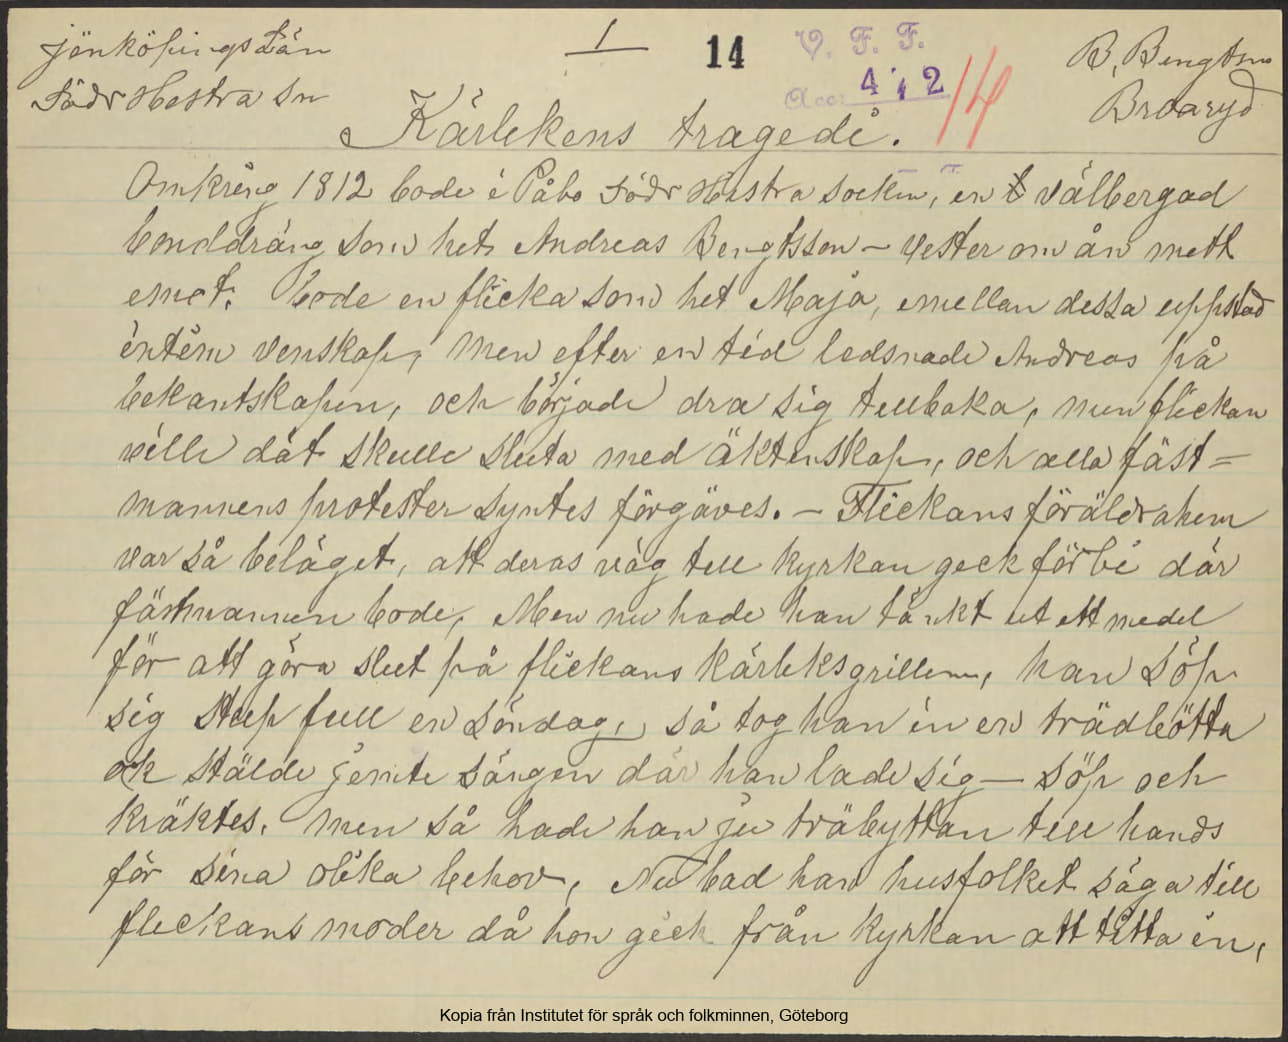 Jönköpings Län
Södr Hestra Sn
1
14
V. F. F.
Acc. 472
14
B. Bengtson
Broaryd
Kärlekens tragedi.
Omkring 1812 bode i Påbo Södr Hestra socken, en välbergad
bonddräng som het Andreas Bengtsson – vester om ån mitt
emot. bode en flicka som het Maja, emellan dessa uppstod
intim venskap, men efter en tid ledsnade Andreas på
bekantskapen, och började dra sig tillbaka, men flickan
ville dät skulle sluta med äktenskap, och alla fäst=
mannens protester syntes förgäves. – Flickans föräldrahem
var så beläget, att deras väg till kyrkan geck förbi där
fästmannen bode, Men nu hade han tänkt ut ett medel
för att göra slut på flickans kärleksgriller, han söp
sig stupfull en söndag, så tog han in en trädbötta
ok stälde jemte sängen där han lade sig – söp och
kräktes. men så hade han ju träbyttan till hands
för sina olika behov, Nu bad han husfolket säga till
flickans moder då hon gick från kyrkan att titta in,
Kopia från Institutet för språk och folkminnen, Göteborg